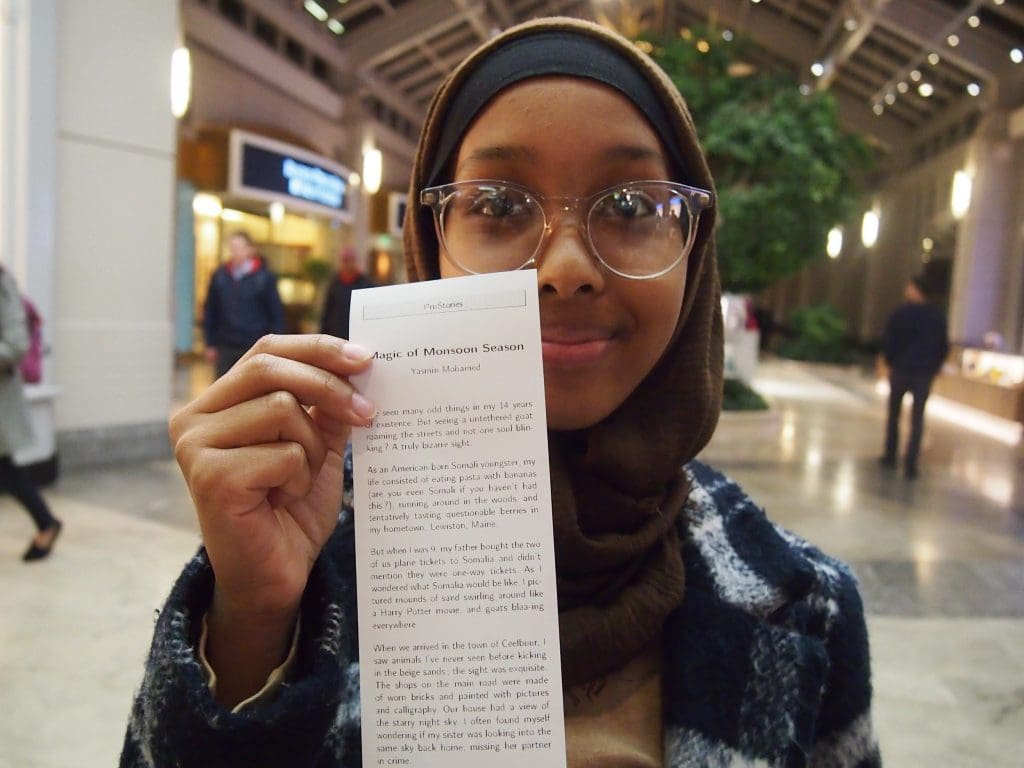 ProStories
Magic of Monsoon Season
Yasmin Mohamed
seen many odd things in my 14 years
of existence. But seeing a untethered goat
roaming the streets and not one soul blin-
king ? A truly bizarre sight.
As an American-born Somali youngster, my
life consisted of eating pasta with bananas
(are you even Somali if you haven't had
this ?), running around in the woods, and
tentatively tasting questionable berries in
my hometown, Lewiston, Maine.
But when I was 9, my father bought the two
of us plane tickets to Somalia and didn't
mention they were one-way tickets. As I
wondered what Somalia would be like, I pic-
tured mounds of sand swirling around like
a Harry Potter movie, and goats blaa-ing
everywhere.
When we arrived in the town of Ceelbuur, I
saw animals I've never seen before kicking
in the beige sands ; the sight was exquisite.
The shops on the main road were made
of worn bricks and painted with pictures
and calligraphy. Our house had a view of
the starry night sky. I often found myself
wondering if my sister was looking into the
same sky back home, missing her partner
in crime.